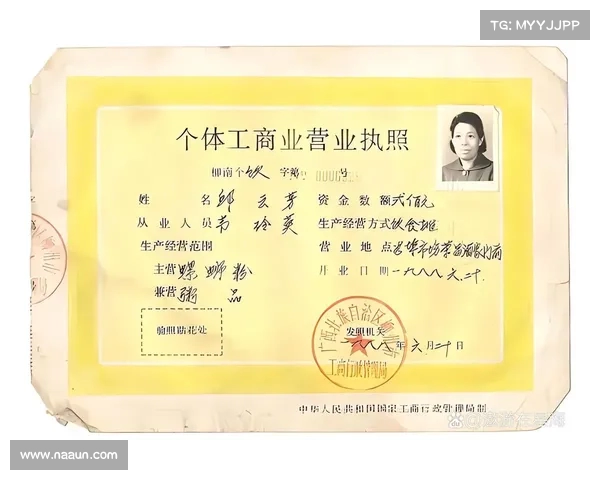 TG: MYYJJPP
个体工商业营业执照
柳南个饮 字第 号
姓 名 邱云芳 资金数额 弍佰元
从业人员 韦玲英 生产经营方式 饮食摊
生产经营范围 营业地点
主营 螺蛳粉 开业日期 一九八八.六.二十
兼营 粥品
验照贴花处
发照机关
一九八八年六月二十日
工商行政管理局
中华人民共和国国家工商行政管理局制
www.naaun.com